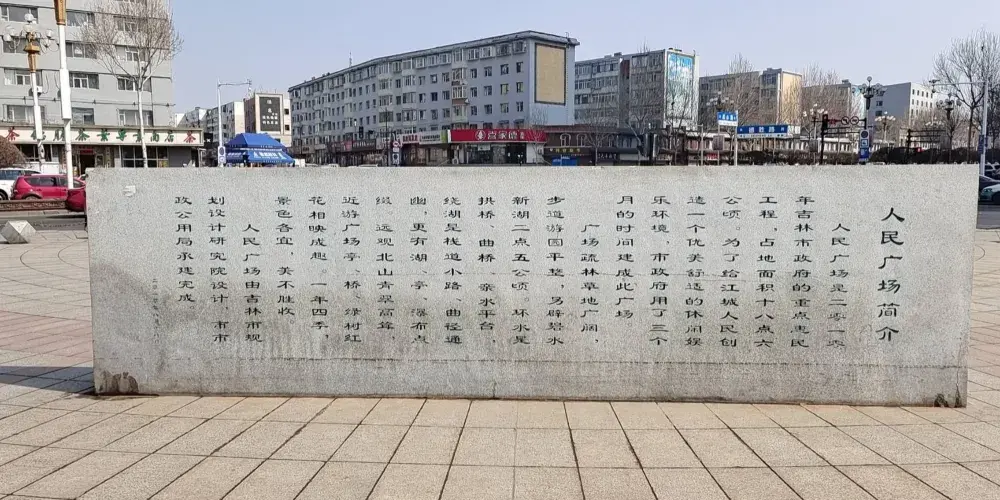 人民广场简介
人民广场是二零一零
年吉林市政府的重点惠民
工程，占地面积十八点六
公顷。为了给江城人民创
造一个优美舒适的休闲娱
乐环境，市政府用了三个
月的时间建成此广场
广场疏林草地广阔，
步道游园平整，另辟碧水
新湖二点五公顷。环水是
拱桥、曲桥、亲水平台，
绕湖是栈道小路、曲径通
幽，更有湖、亭、瀑布点
缀，远观北山青翠高耸，
近游广场亭、桥、绿树红
花相映成趣。一年四季，
景色各宜，美不胜收
人民广场由吉林市规
划设计研究院设计、市市
政公用局承建完成